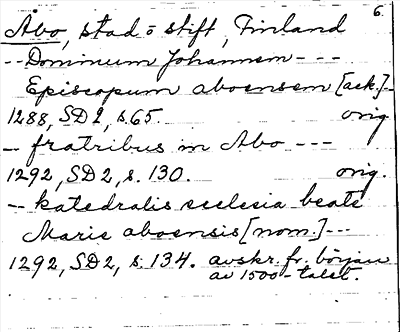 6.
Åbo, stad o stift, Finland
-- Dominum Johannem ---
Episcopum aboensem [ack.]--
1288, SD2, s.65. orig
-- fratribus in Abo ---
1292, SD2, s. 130. orig.
-- katedralis ecclesia beate
Marie aboensis [nom.]---
1292, SD2, s. 134. avskr. fr. början
av 1500-talet.